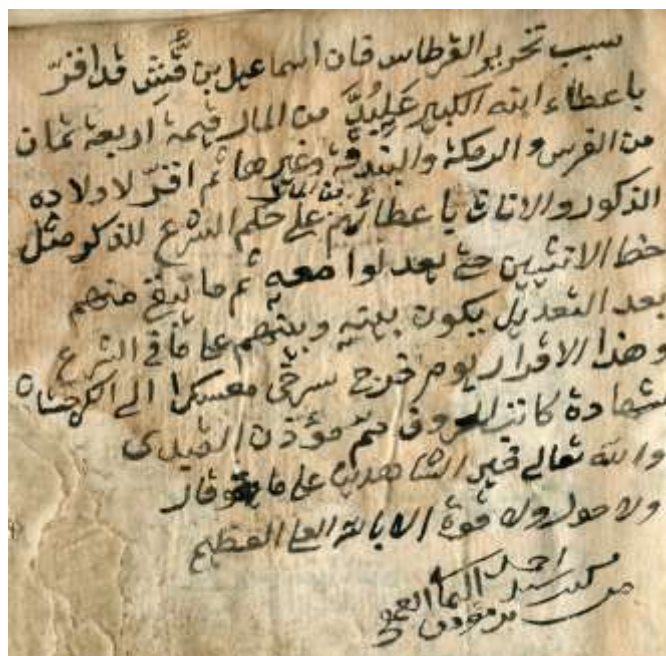 سبب تحرير القرطاس فان اسماعيل بن قُنَّش قد اقرّ
باعطاء ابنه الكبير عَلِبُلَّ من المال قيمة اربعة ثمان
من الفرس والرمكة والبندقة وغيرها ثم اقرّ لاولاده
الذكور والاناث باعطائهم من المال على حكم الشرع للذكر مثل
حظ الانثيين حتى يعدلوا معه ثم ما بقي منهم
بعد التعديل يكون بينه وبينهم على ما في الشرع
وهذا الاقرار يوم خرج معسكرا الى
بشهادة كاتب الحروف مؤذن
والله تعالى خير الشاهدين على ما وقال
ولا حول ولا قوة الا بالله العلي العظيم
احمد
من